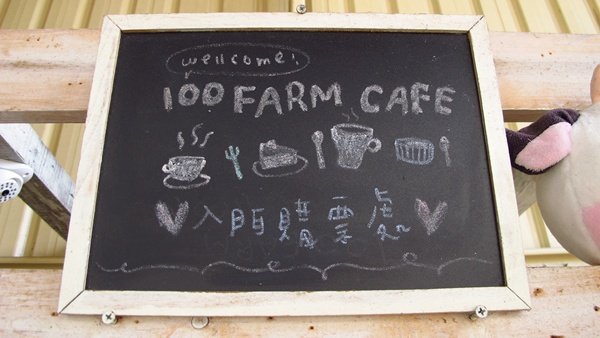 wellcome!
100 FARM CAFE
入門購票處